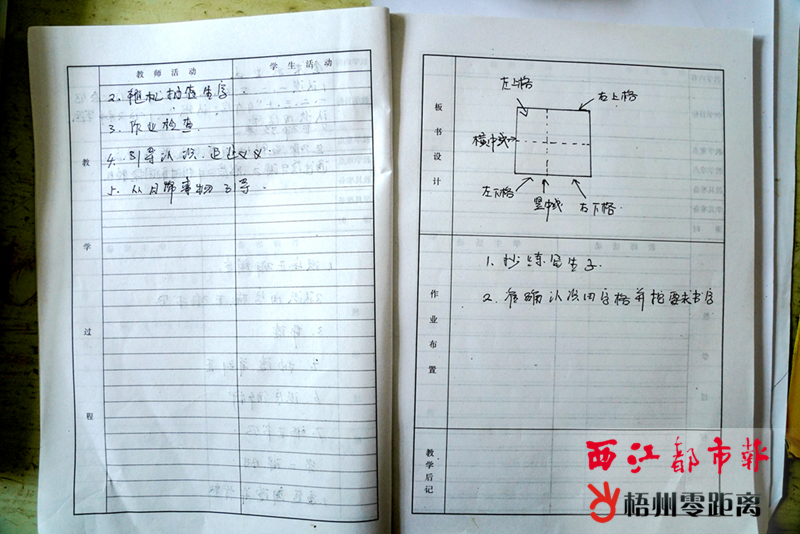 教师活动
学生活动
2. 随机抽查生字
3. 作业检查.
4. 引导认识、
5. 从日常事物引导.
教学过程
板书设计
左上格
右上格
横中线
左下格
竖中线
右下格.
作业布置
1. 抄练写生字.
2. 准确认识田字格并按要求书写
教学后记
西江都市报
梧州零距离